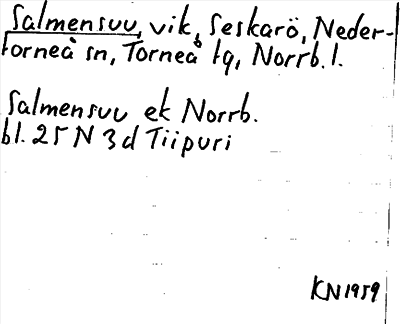 Salmensuu, vik, Seskarö, Neder-
torneå sn, Torneå tg, Norrb. l.
Salmensuu ek Norrb.
bl. 25 N 3d Tiipuri
KN 1959